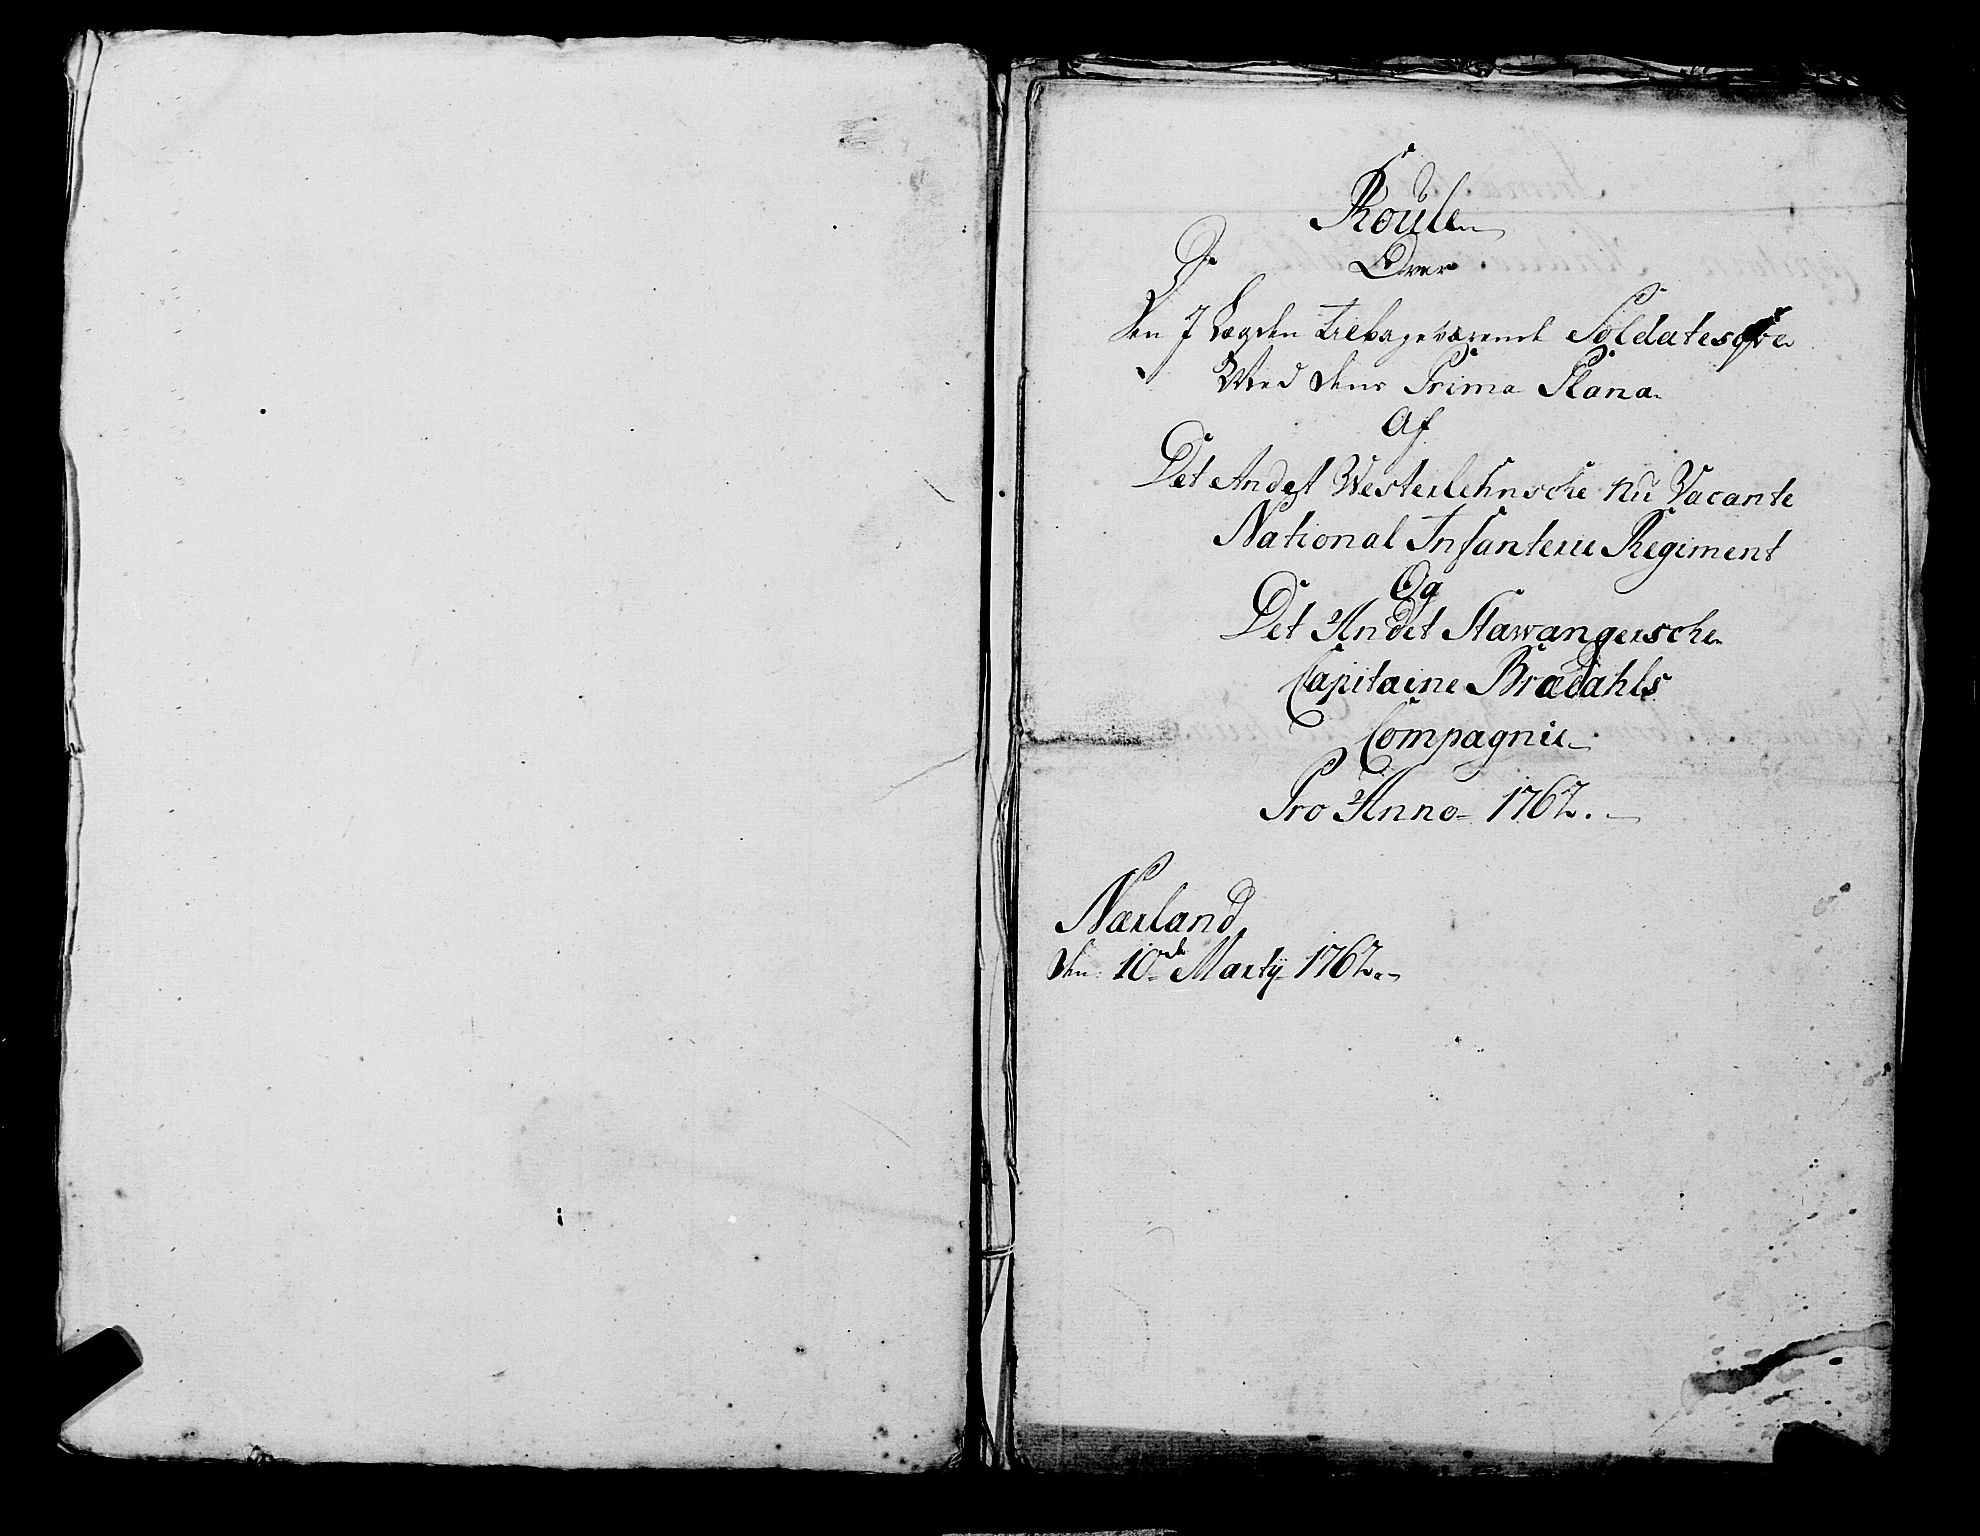 Roule
Over
De
Den J Lægden tilbageværende Soldatesqve
Med dens Prima Plana
Af
Det Andet Westerlehnsche nu Vacante
National Infanterie Regiment
Og
Det Andet Stawangersche
Capitaine Brædahls
Compagnie
Pro Anno 1762.
Nærland
den 10de Marty 1762.